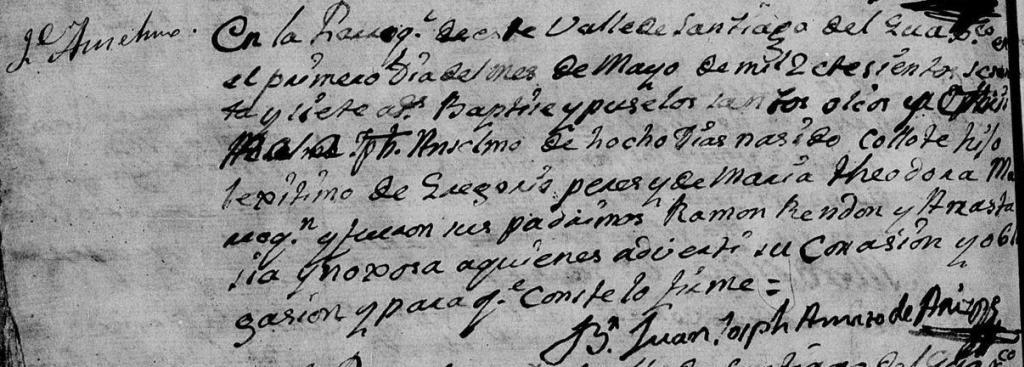 Jph Anselmo.
En la Parroq.l de este Valle de Santiago del Guax.co en
el primero Dia del mes de Mayo de mil Setesientos secen
ta y siete a.s Baptise y puse los santos olios y
Jph. Anselmo de hocho Dias nasido collote hijo
lexitimo de Gregorio peres y de Maria Theodora Ma
rroq.n y fueron sus padrinos Ramon Rendon y Anasta
sia Ynoxosa a quienes adverti su Conasion y obli
gasion y para q.e Conste lo firme =
B.r Juan Joseph Amaro de